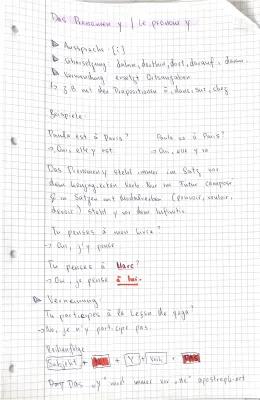 Das Pronomen y / Le pronom y
Aussprache: [i]
Übersetzung dahin, dorthin, dort, darauf, daran
Verwendung ersetzt Ortsangaben
z.B mit den Präpositionen à, dans, sur, chez
Beispiele:
Paula est à Paris? Paula va à Paris?
→ Oui, elle y est → Oui, elle y va
Das Pronomen y steht immer im Satz vor
dem konjugierten Verb. Nur im Futur composé
& in Sätzen mit Modalverben (pouvoir, vouloir,
devoir) steht y vor dem Infinitiv
Tu penses à mon livre?
→ Oui, j'y pense
Tu penses à Marc?
→ Oui, je pense à lui.
Verneinung
Tu participes à la leçon de yoga?
→ Non, je n'y participe pas
Reihenfolge
Subjekt + + Y + Verb + pas
Das "y" wird immer vor "ne" apostrophiert